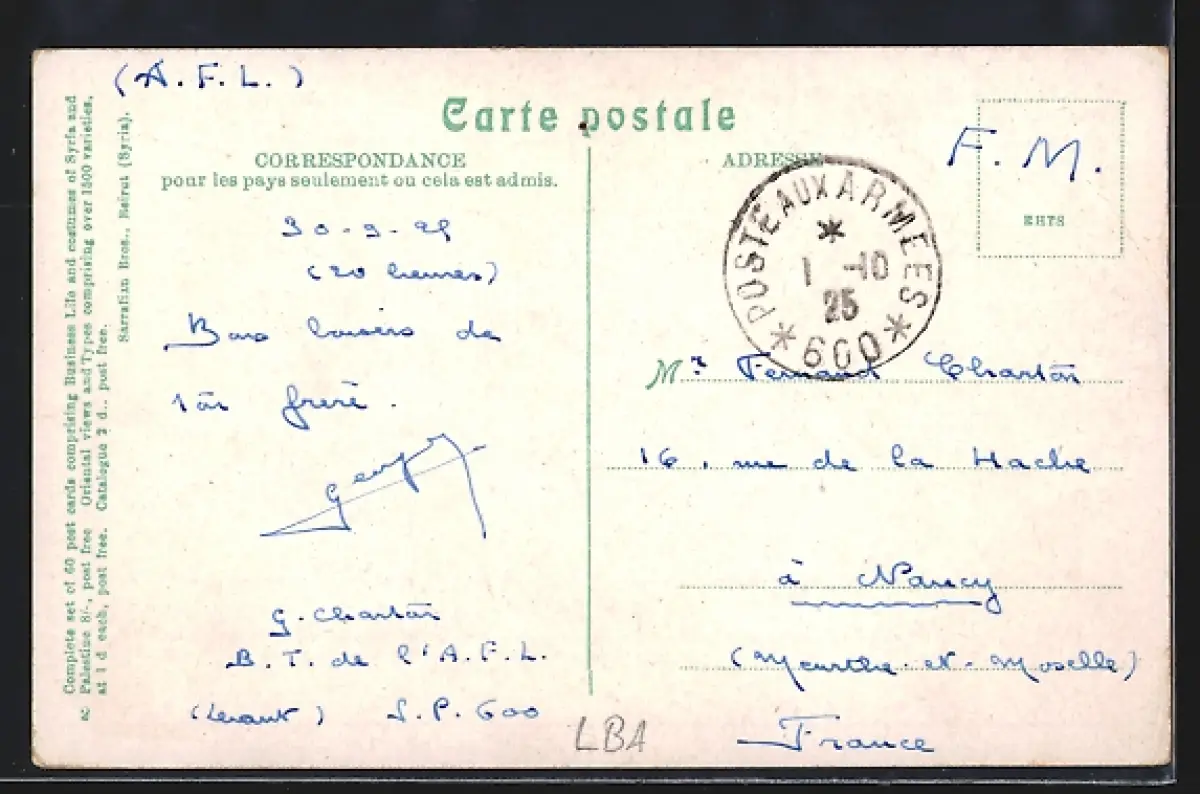 (A. F. L.)
Carte postale
CORRESPONDANCE
pour les pays seulement ou cela est admis.
ADRESSE
F. M.
POSTE AUX ARMEES
1 -10
25
* 600 *
30-9-25
(20 heures)
Bons baisers de
ton frère.
Georges
G. Charton
B. T. de l'A. F. L.
(Levant) S. P. 600
Mr. Fernand Charton
16, rue de la Hache
à Nancy
(Meurthe-et-Moselle)
France
LBA
Complete set of 60 post cards comprising Business Life and costumes of Syria and
Palestine 8/-, post free Oriental views and Types comprising over 1500 varieties,
at 1 d each, post free. Catalogue 3 d., post free.
Sarrafian Bros., Beirut (Syria).